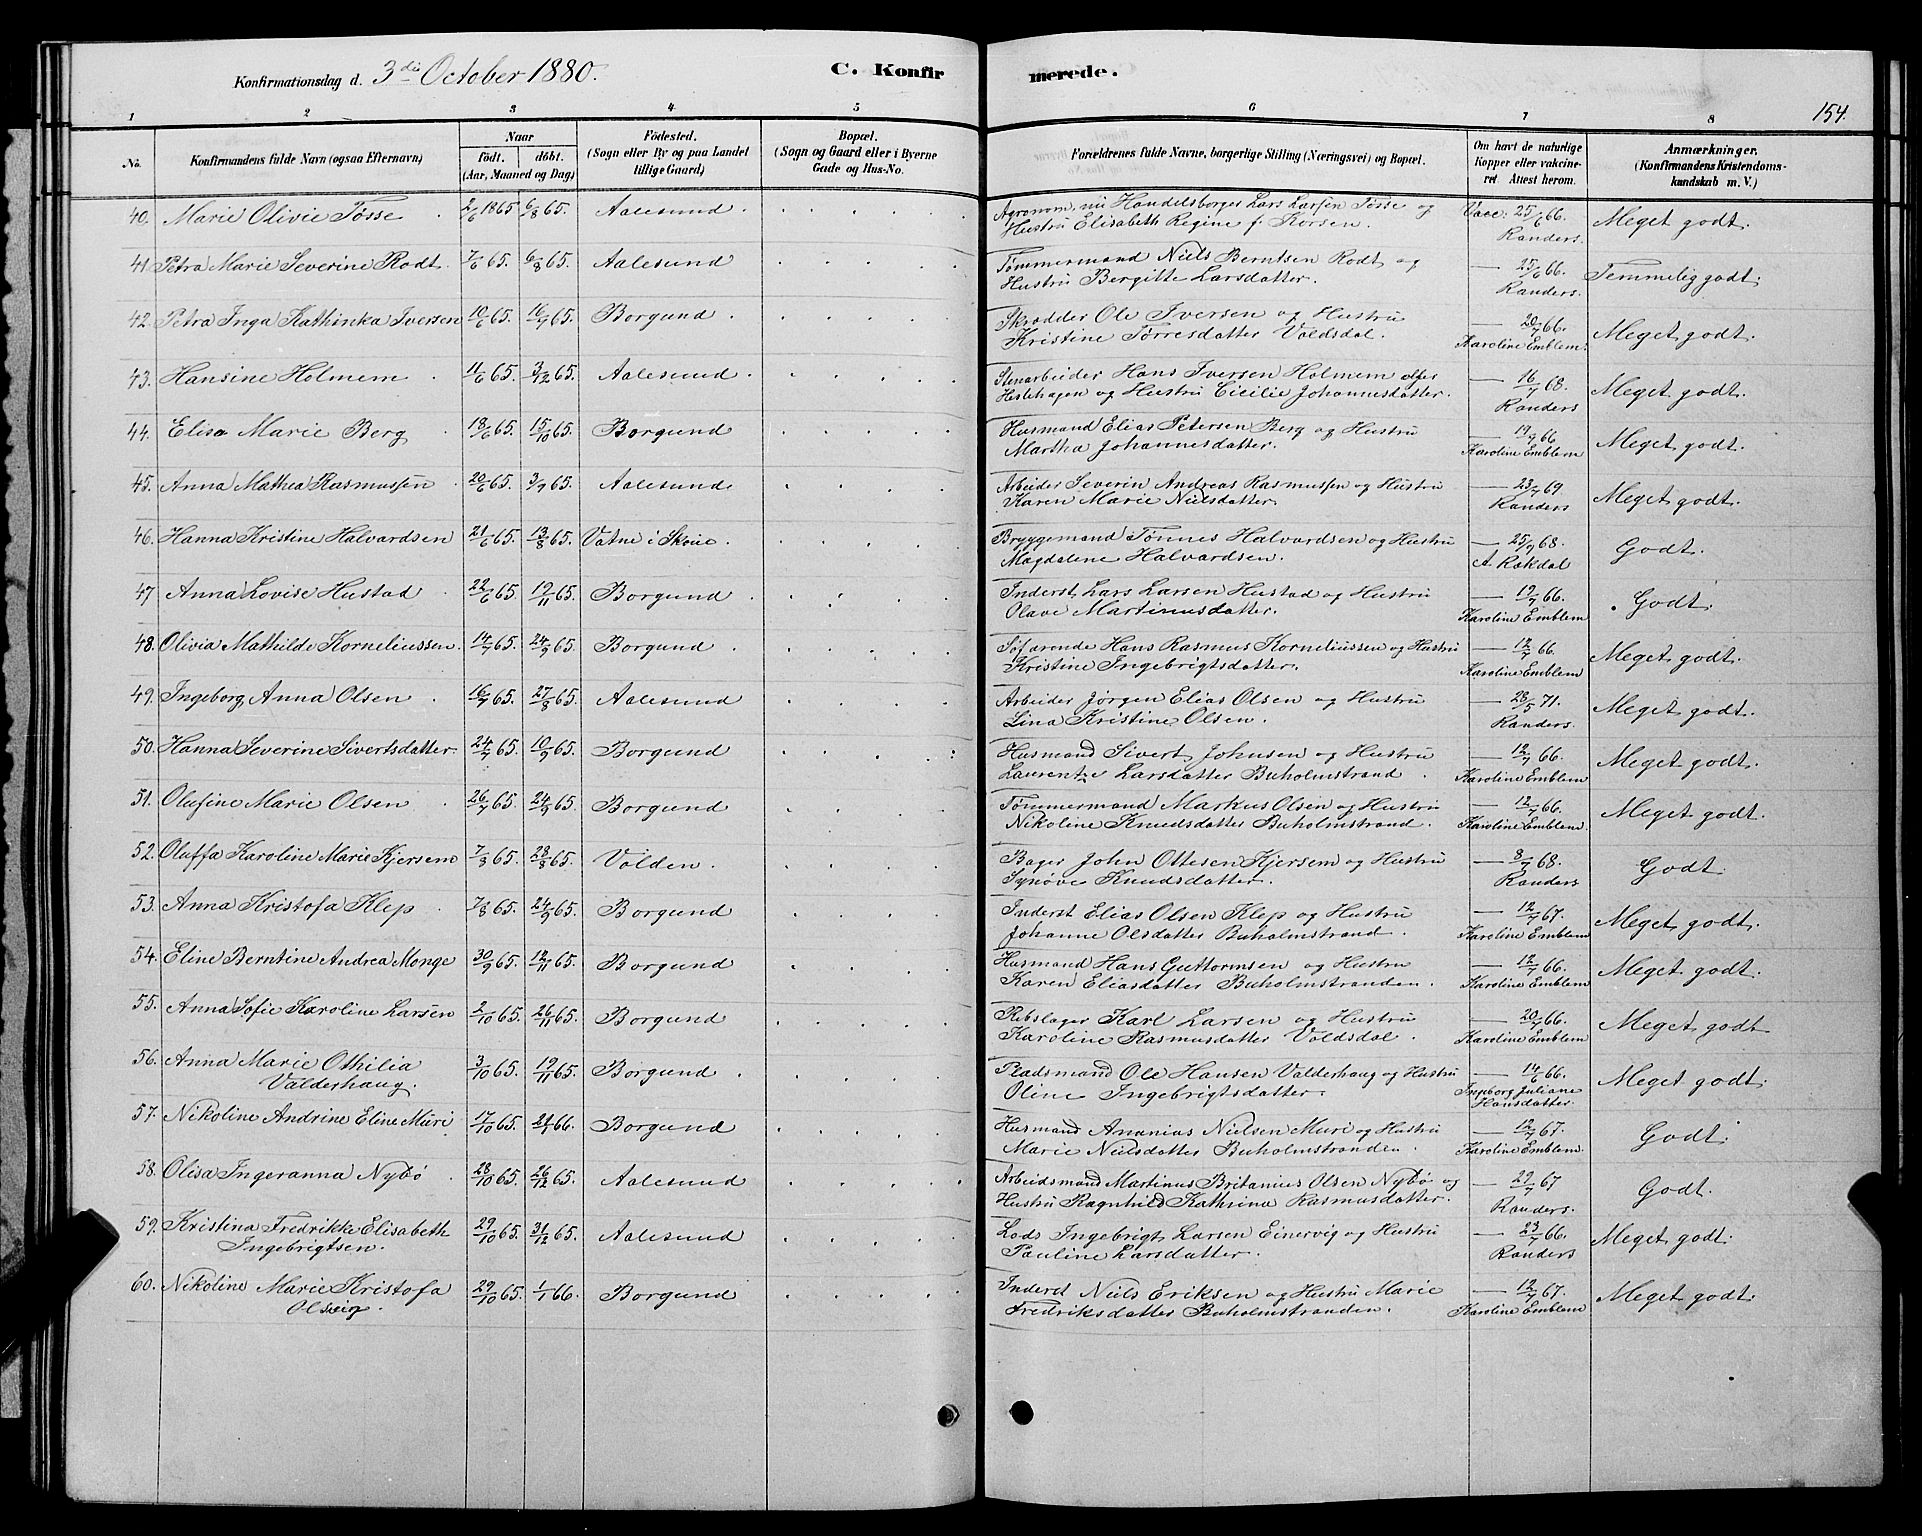 Konfirmationsdag d. 3die October 1880.
C. Konfirmerede.
154.
1 2 3 4 5 6 7 8
No.
Konfirmandens fulde Navn (ogsaa Efternavn)
Naar
födt. döbt.
(Aar, Maaned og Dag)
Födested.
(Sogn eller By og paa Landet
tillige Gaard)
Bopæl.
(Sogn og Gaard eller i Byerne
Gade og Hus-No.
Forældrenes fulde Navne, borgerlige Stilling (Næringsvei) og Bopæl.
Om havt de naturlige
Kopper eller vakcine-
ret. Attest herom.
Anmærkninger.
(Konfirmandens Kristendoms-
kundskab m. V.)
40. Marie Olivie Tösse 2/6 1865 6/8 65. Aalesund Agronom, nu Handelsborger Lars Larsen Tösse og Vacc: 25/6 66. Meget godt.
Hustru Elisabeth Regine f. Korsen. Randers.
41 Petra Marie Severine Rodt. 7/6 65. 6/8 65. Aalesund Tömmermand Niels Berntsen Rodt og — 25/6 66. Temmelig godt.
Hustru Bergitte Larsdatter. Randers.
42. Petra Inga Kathinka Iversen 10/6 65. 16/7 65. Borgund Skrædder Ole Iversen og Hustru — 20/7 66. Meget godt.
Kristine Tørresdatter Voldsdal. Karoline Emblem.
43. Hansine Holmem 11/6 65. 3/12 65. Aalesund Stenarbeider Hans Iversen Holmem — 16/7 68. Meget godt.
Heslehagen og Hustru Cicilie Johannesdatter. Randers
44. Elisa Marie Berg 18/6 65. 15/10 65. Borgund Husmand Elias Petersen Berg og Hustru — 19/9 66 Meget godt.
Martha Johannesdatter. Karoline Emblem
45. Anna Mathea Rasmussen 20/6 65. 3/9 65. Aalesund Arbeider Severin Andreas Rasmussen og Hustru — 23/7 69 Meget godt.
Karen Marie Nielsdatter. Randers
46. Hanna Kristine Halvardsen 21/6 65. 13/8 65. Vatne i Skoie. Bryggemand Tönnes Halvardsen og Hustru — 25/9 68. Godt.
Magdalene Halvardsen. A Rökdal
47 Anna Lovise Hustad 22/6 65. 19/11 65. Borgund Inderst Lars Larsen Hustad og Hustru — 19/7 66. Godt.
Olave Martinusdatter. Karoline Emblem
48. Olivia Mathilde Korneliussen. 14/7 65. 24/9 65. Borgund Söfarende Hans Rasmus Korneliussen og Hustru — 12/7 66. Meget godt.
Kristine Ingebrigtsdatter. Karoline Emblem
49. Ingeborg Anna Olsen 16/7 65. 27/8 65. Aalesund Arbeider Jörgen Elias Olsen og Hustru — 23/5 71. Meget godt.
Lina Kristine Olsen. Randers.
50. Hanna Severine Sivertsdatter. 24/7 65. 10/9 65. Borgund Husmand Sivert Johnsen og Hustru — 12/7 66. Meget godt.
Laurentze Larsdatter Buholmstrand Karoline Emblem
51. Olufine Marie Olsen 26/7 65. 24/9 65. Borgund Tömmermand Markus Olsen og Hustru — 12/7 66. Meget godt.
Nikoline Knudsdatter Buholmstrand. Karoline Emblem.
52. Oluffa Karoline Marie Kjersem 7/8 65. 28/8 65. Volden. Bager John Ottesen Kjersem og Hustru — 8/7 68. Godt.
Synöve Knudsdatter. Randers
53. Anna Kristofa Klep 7/8 65. 24/9 65. Borgund Inderst Elias Olsen Klep og Hustru — 12/7 67. Meget godt.
Johanne Olsdatter Buholmstrand. Karoline Emblem
54. Eline Berntine Andrea Monge 30/9 65. 12/11 65. Borgund Husmand Hans Guttormsen og Hustru — 12/7 66. Meget godt.
Karen Eliasdatter Buholmstranden. Karoline Emblem
55. Anna Sofie Karoline Larsen 2/10 65. 26/11 65. Borgund Rebslager Karl Larsen og Hustru — 20/7 66. Meget godt
Karoline Rasmusdatter Voldsdal. Karoline Emblem
56. Anna Marie Othilia 3/10 65. 19/11 65. Borgund Pladsmand Ole Hansen Valderhaug og Hustru — 14/6 66. Meget godt.
Valderhaug. Oline Ingebrigtsdatter. Ingeborg Juliane
Hansdatter.
57. Nikoline Andrine Eline Muri 17/10 65. 21/1 66. Borgund Husmand Ananias Nielsen Muri og Hustru — 12/7 67. Godt
Marie Nielsdatter Buholmstranden. Karoline Emblem.
58. Olisa Ingeranna Nybö 28/10 65. 26/12 65. Aalesund Arbeidsmand Martinus Britanius Olsen Nybö og — 29/7 67 Godt.
Hustru Ragnhild Kathrina Rasmusdatter. Randers.
59. Kristina Fredrikke Elisabeth 29/10 65. 31/12 65. Aalesund Lods Ingebrigt Larsen Einervig og Hustru — 23/7 66. Meget godt.
Ingebrigtsen. Pauline Larsdatter. Randers
60. Nikoline Marie Kristofa 29/10 65. 1/1 66. Borgund Inderst Niels Eriksen og Hustru Marie — 12/7 67. Meget godt.
Olsvig. Fredriksdatter Buholmstranden. Karoline Emblem